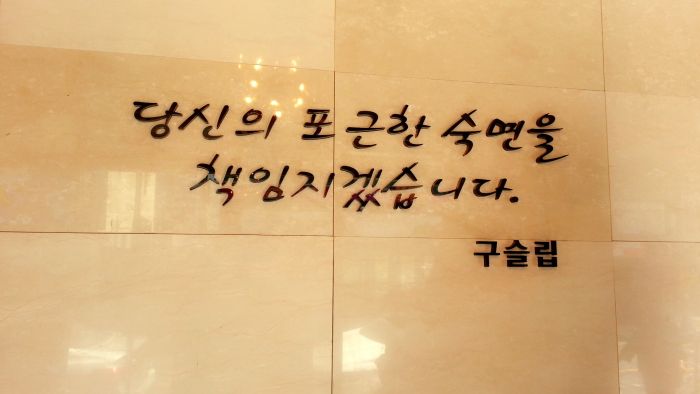 당신의 포근한 숙면을
책임지겠습니다.
구슬립